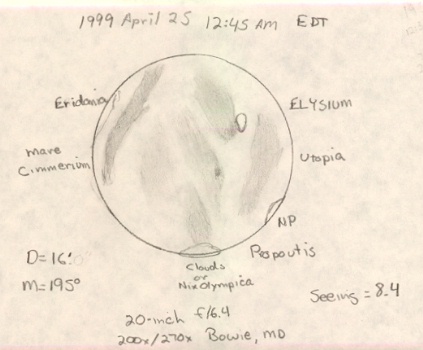 1999 April 25 12:45 AM EDT
Eridania
ELYSIUM
mare
Cimmerium
Utopia
NP
Propoutis
D=16"
M=195°
Clouds
or
Nix Olympica
Seeing = 8.4
20-inch f/6.4
200x/270x Bowie, MD